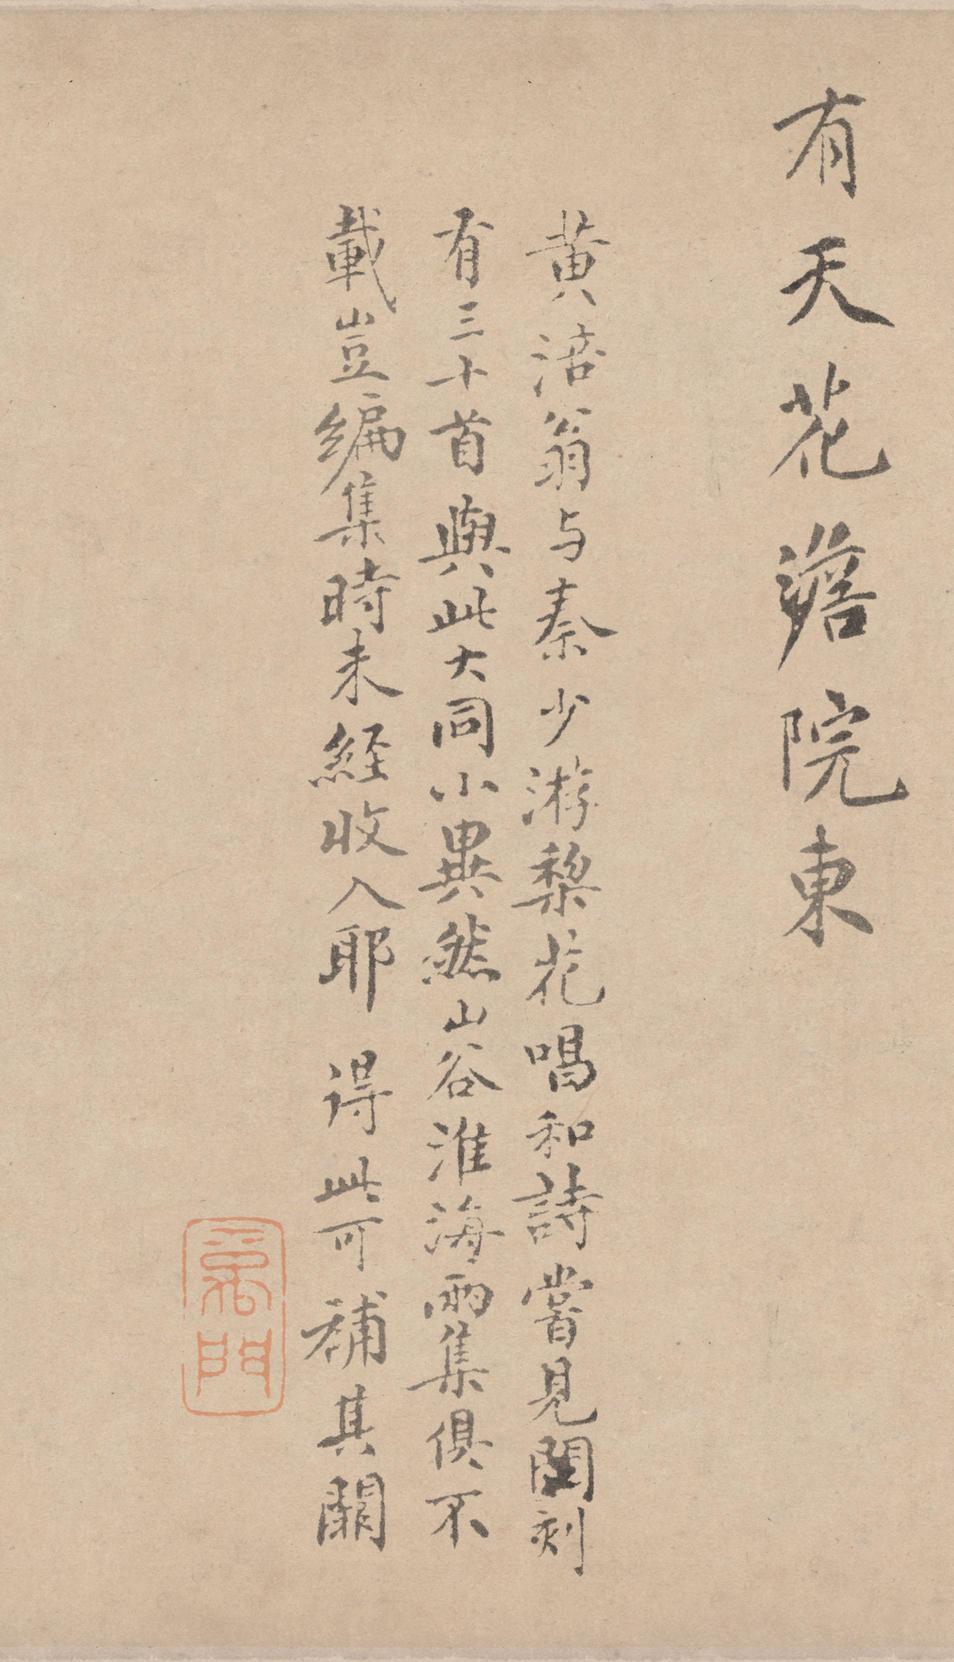 有天花澹院東
黄涪翁与秦少游梨花唱和詩嘗見閩刻
有三十首與此大同小異然山谷淮海兩集俱不
載豈編集時未經收入耶 得此可補其闕
門